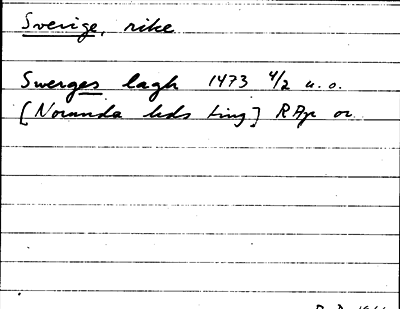 Sverige, rike
Swerges lagh 1473 4/2 u.o.
[Norunda hds ting] RAp or